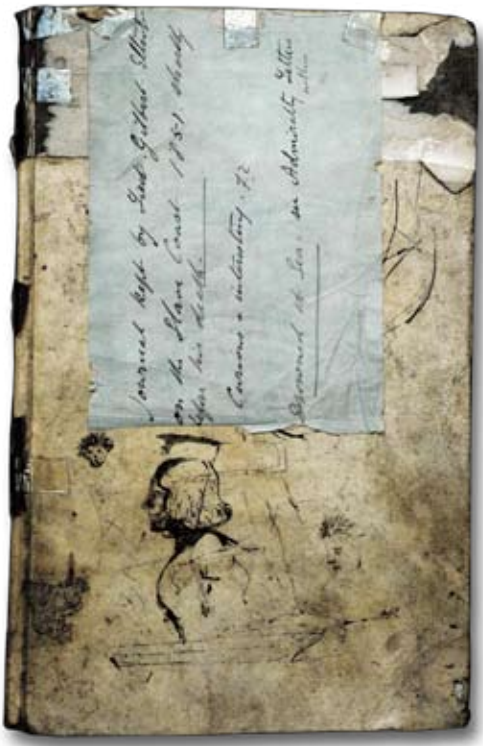 Journal kept by Lieut. Gilbert Elliot
on the Slave Coast 1851. shortly
before his death.
Curious & interesting. 72
Drowned at Sea. see Admiralty Letter
within